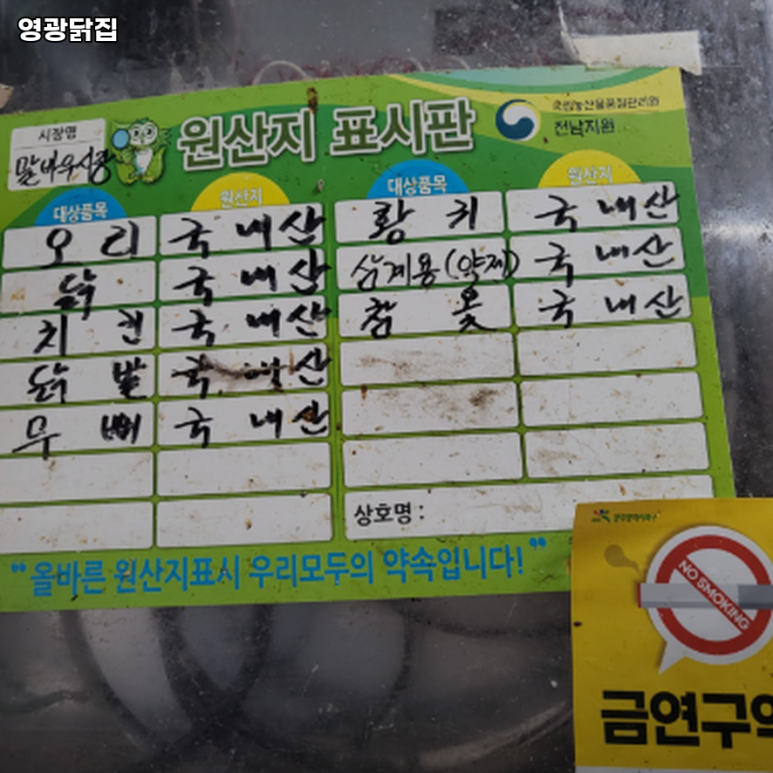 영광닭집
시장명
말바우시장
원산지 표시판
국립농산물품질관리원
전남지원
대상품목 원산지 대상품목 원산지
오리 국내산 황귀 국내산
닭 국내산 삼계용(약제) 국내산
치킨 국내산 참옻 국내산
닭발 국내산
무뼈 국내산
상호명 :
"올바른 원산지표시 우리모두의 약속입니다!"
NO SMOKING
금연구역